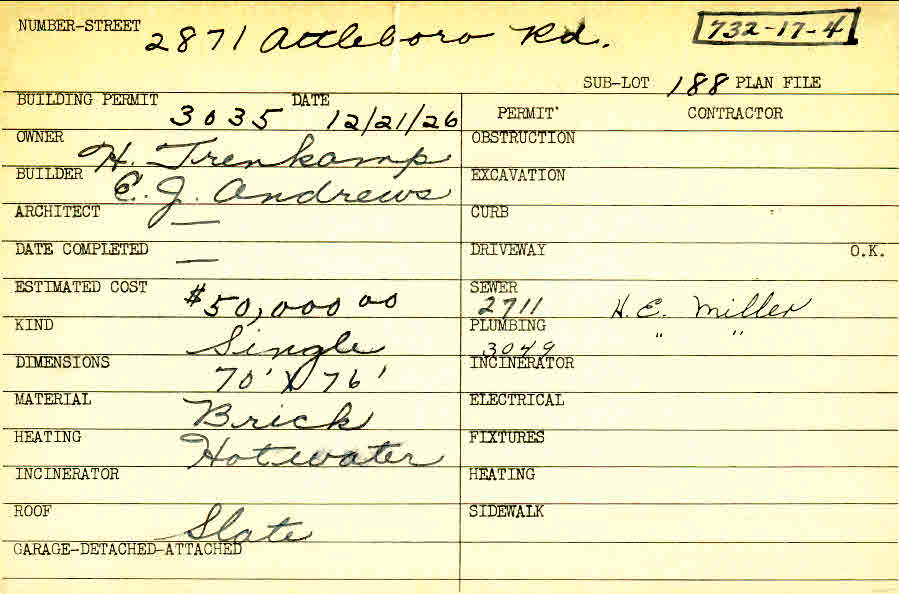 NUMBER-STREET 2871 Attleboro Rd. 732-17-4
SUB-LOT 188 PLAN FILE
BUILDING PERMIT 3035 DATE 12/21/26
PERMIT CONTRACTOR
OWNER H. Trenkamp
OBSTRUCTION
BUILDER E. J. Andrews
EXCAVATION
ARCHITECT —
CURB
DATE COMPLETED —
DRIVEWAY O.K.
ESTIMATED COST $50,000 00
SEWER 2711 H. E. Miller
KIND Single
PLUMBING 3049 " "
DIMENSIONS 70' X 76'
INCINERATOR
MATERIAL Brick
ELECTRICAL
HEATING Hotwater
FIXTURES
INCINERATOR
HEATING
ROOF Slate
SIDEWALK
GARAGE-DETACHED-ATTACHED